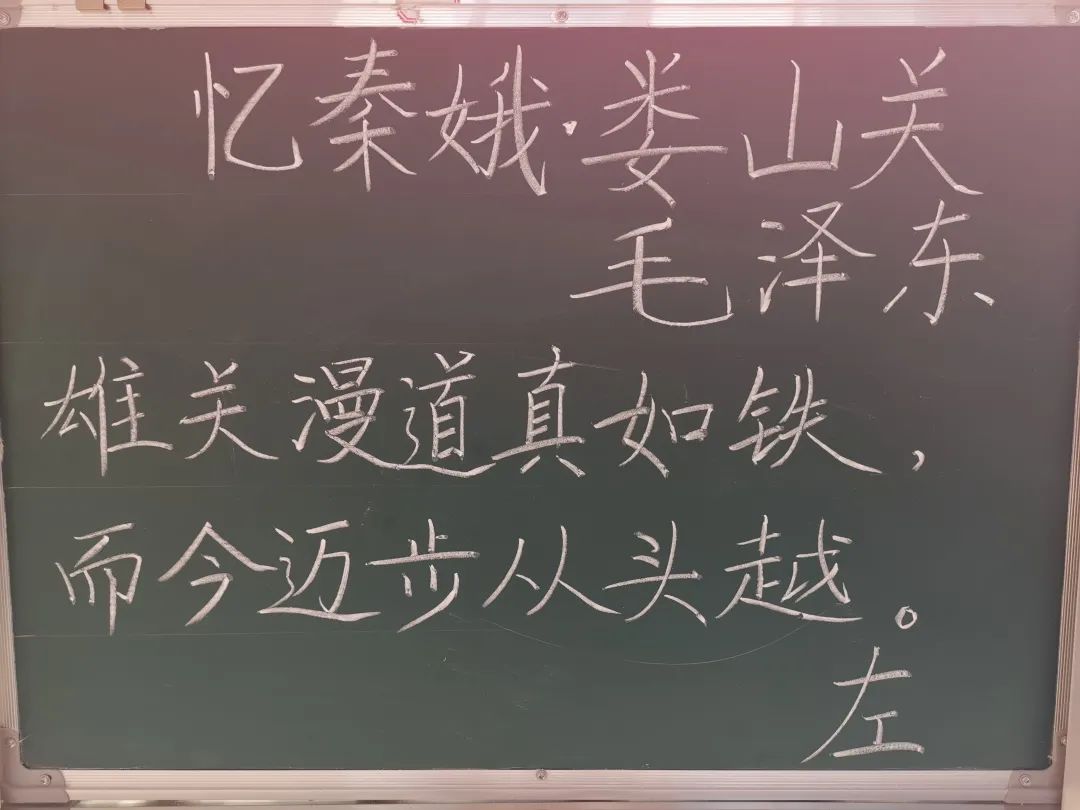 忆秦娥·娄山关
毛泽东
雄关漫道真如铁，
而今迈步从头越。
左